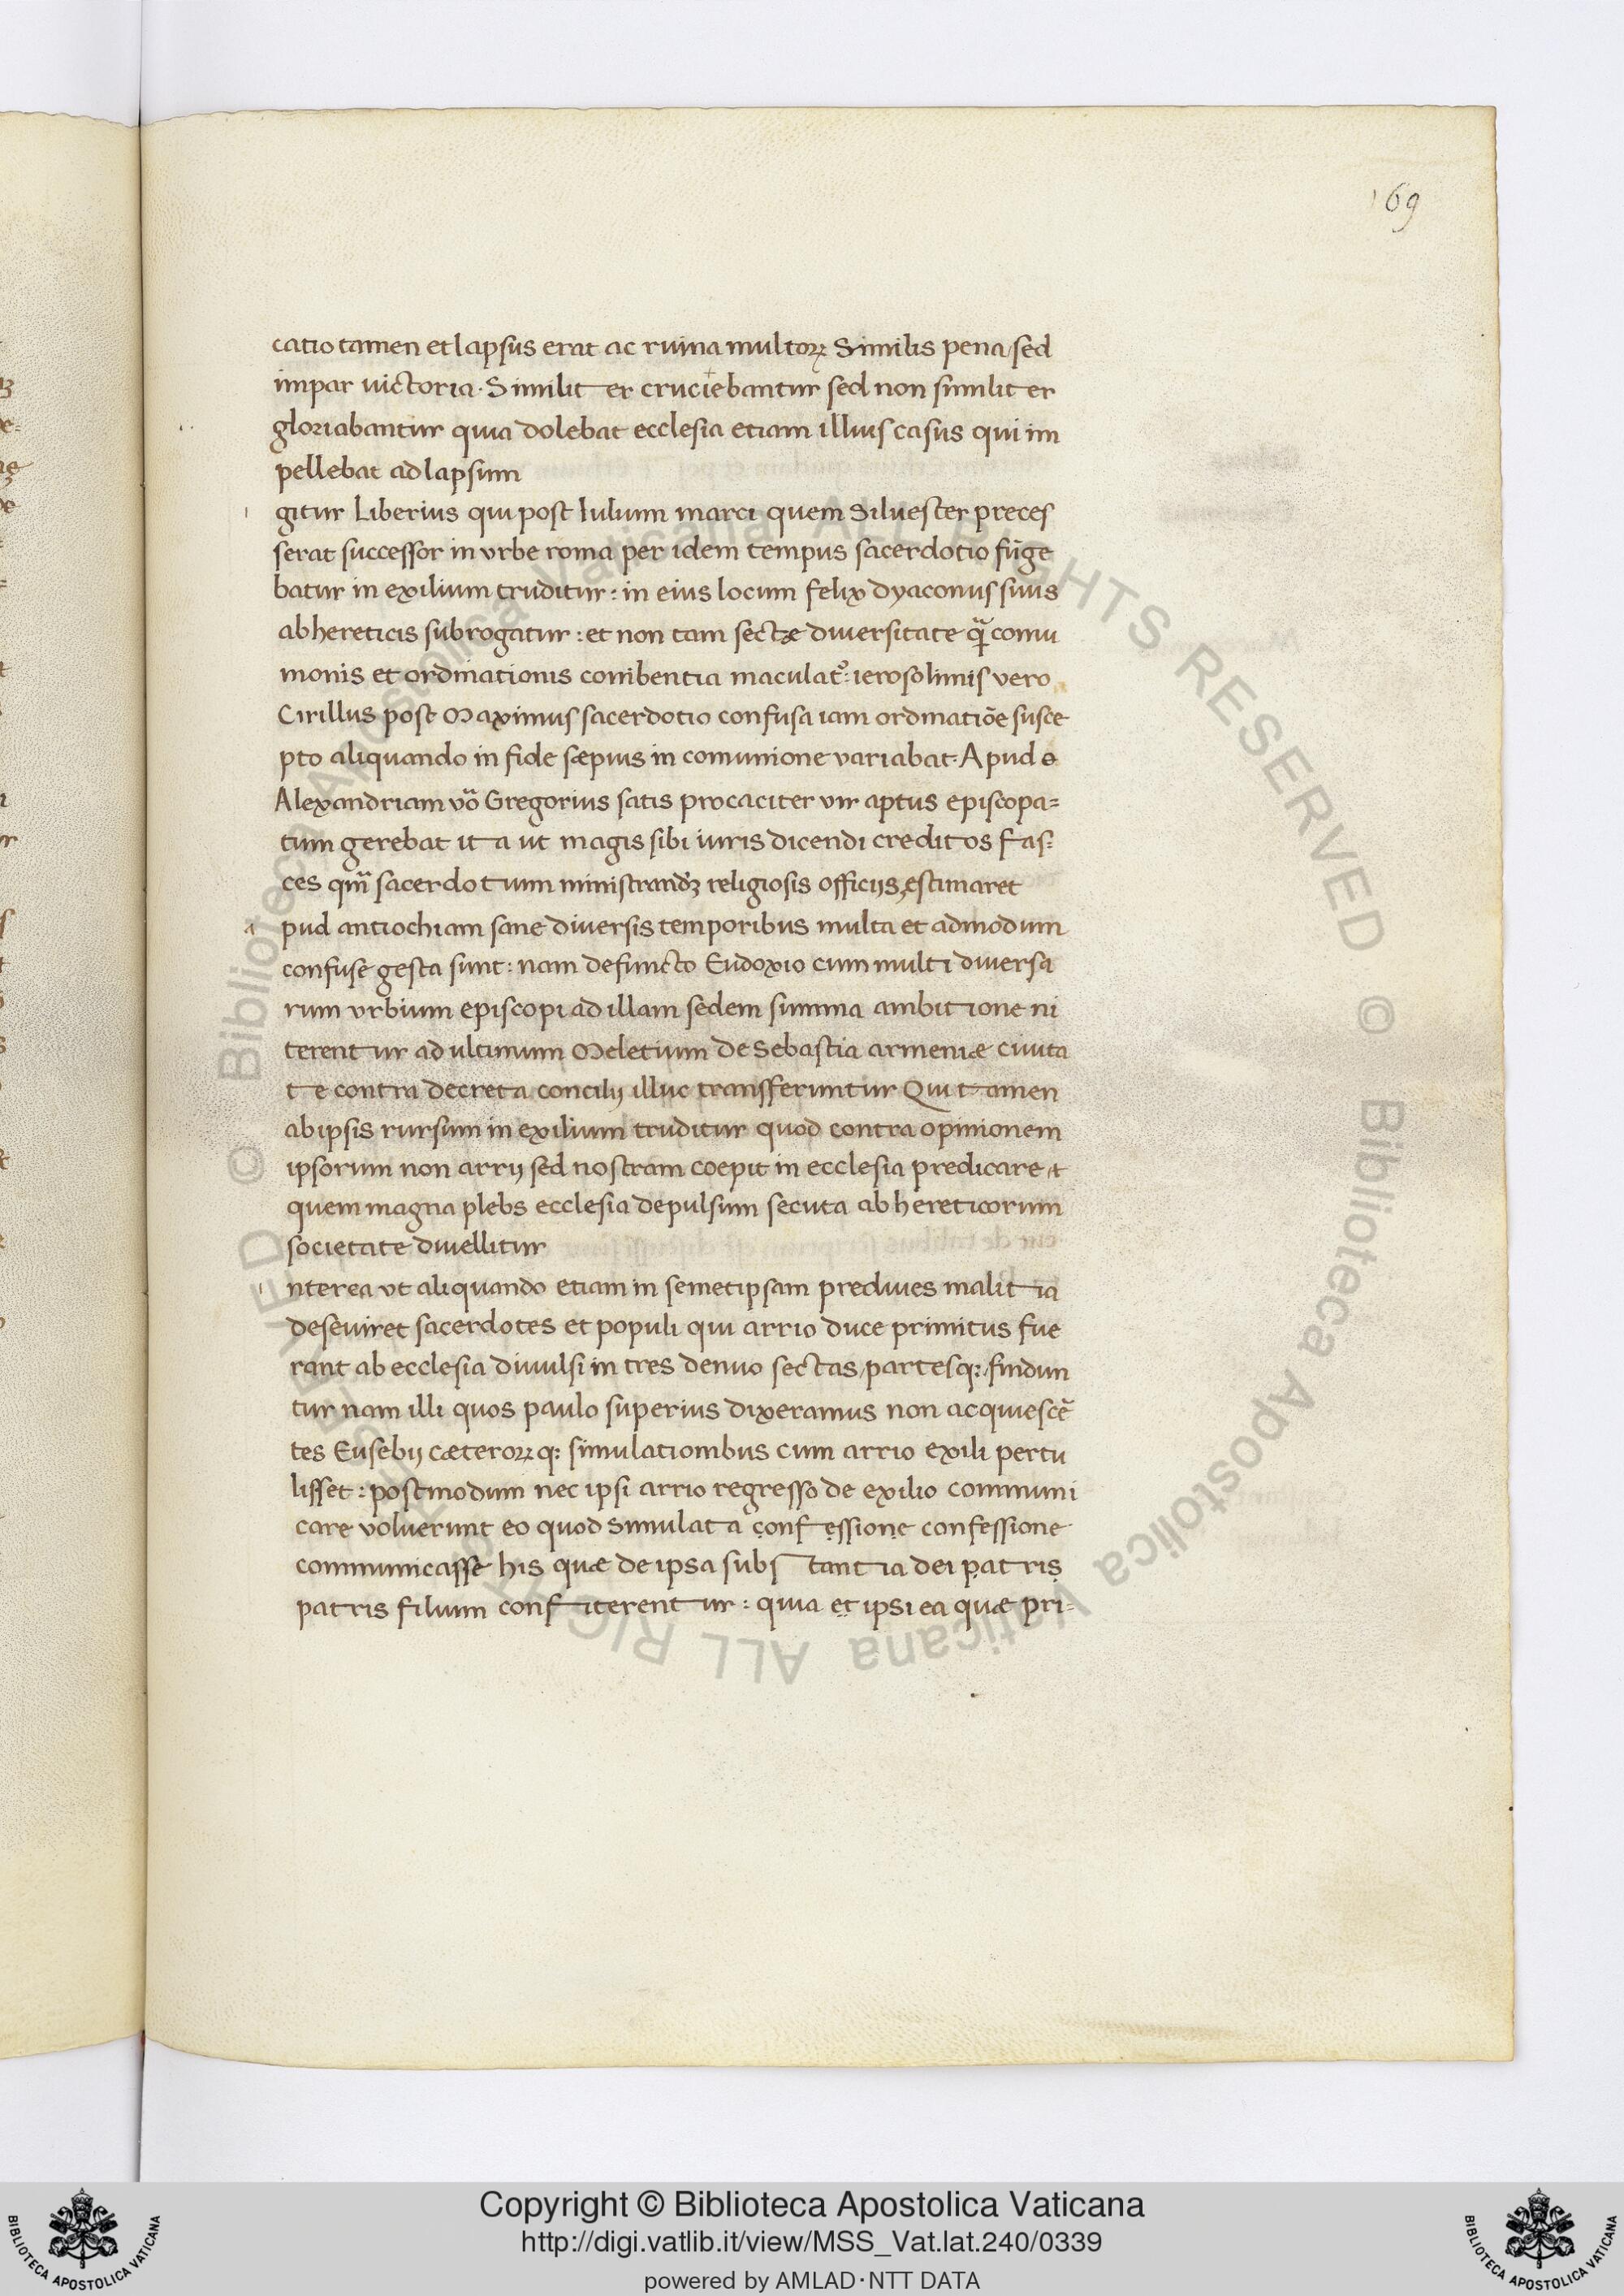 169
catio tamen et lapsus erat ac ruina multoꝝ Similis pena / sed
impar uictoria · Similiter cruciebantur sed non similiter
gloriabantur quia dolebat ecclesia etiam illius casus qui im
pellebat ad lapsum
i gitur Liberius qui post Iulium marci quem Siluester preces
serat successor in vrbe roma per idem tempus sacerdotio fūge
batur in exilium truditur : in eius locum felix dyaconus suus
ab hereticis subrogatur : et non tam sectæ diuersitate q̄ comu
monis et ordinationis conibentia maculat᷒ : ierosolimis vero
Cirillus post Maximus sacerdotio confusa iam ordinatiōe susce
pto aliquando in fide sæpius in comunione variabat · Apud
Alexandriam vō Gregorius satis procaciter vir aptus episcopa=
tum gerebat ita ut magis sibi iuris dicendi creditos fas=
ces qm̄ sacerdotium ministrandꝫ religiosis officijs estimaret
a pud antiochiam sane diuersis temporibus multa et admodum
confuse gesta sunt : nam defuncto Eudoxio cum multi diuersa
rum vrbium episcopi ad illam sedem summa ambitione ni
terentur ad ultimum Meletium de Sebastia armeniæ ciuita
te contra decreta concilij illuc transferuntur Qui tamen
ab ipsis rursum in exilium truditur quod contra opinionem
ipsorum non arrij sed nostram coepit in ecclesia predicare et
quem magna plebs ecclesia depulsum secuta ab hereticorum
societate diuellitur
i nterea vt aliquando etiam in semetipsam prediues malitia
deseuiret sacerdotes et populi qui arrio duce primitus fue
rant ab ecclesia diuulsi in tres denuo sectas / partesq: / findun
tur nam illi quos paulo superius dixeramus non acquiescē
tes Eusebij cæteroꝝ q: simulationibus cum arrio exili pertu
lisset : postmodum nec ipsi arrio regresso de exilio communi
care voluerunt eo quod simulata confessione confessione
communicasse his quæ de ipsa substantia dei patris
patris filium confiterentur : quia et ipsi ea quæ pri=
© Biblioteca Apostolica Vaticana ALL RIGHTS RESERVED
Copyright © Biblioteca Apostolica Vaticana
http://digi.vatlib.it/view/MSS_Vat.lat.240/0339
powered by AMLAD·NTT DATA
BIBLIOTECA APOSTOLICA VATICANA
BIBLIOTECA APOSTOLICA VATICANA